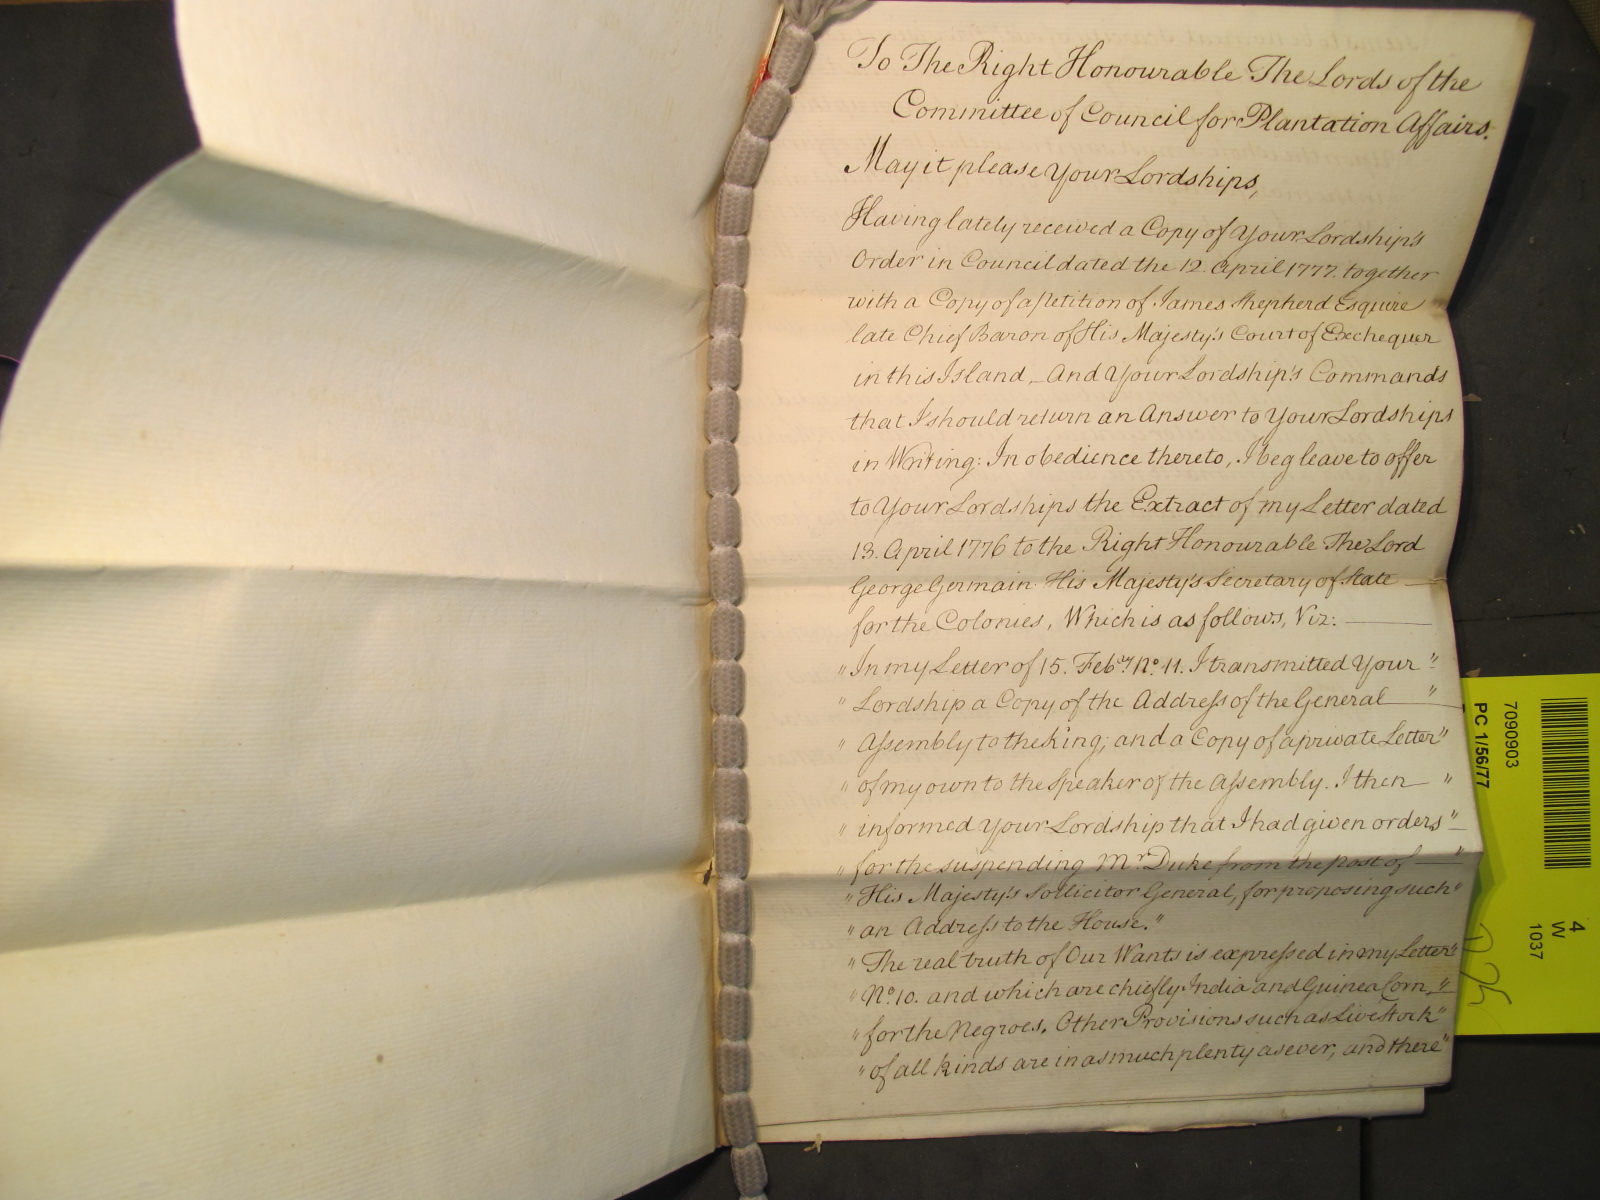 To The Right Honourable The Lords of the
Committee of Council for Plantation Affairs.
May it please Your Lordships,
Having lately received a Copy of Your Lordship's
Order in Council dated the 12. April 1777. together
with a Copy of a Petition of James Shepherd Esquire
late Chief Baron of His Majesty's Court of Exchequer
in this Island, And Your Lordship's Commands
that I should return an Answer to Your Lordships
in Writing: In obedience thereto, I beg leave to offer
to Your Lordships the Extract of my Letter dated
13. April 1776 to the Right Honourable The Lord
George Germain His Majesty's Secretary of State
for the Colonies, Which is as follows, Viz:
"In my Letter of 15. Feb.ry No. 11. I transmitted Your "
" Lordship a Copy of the Address of the General "
" Assembly to the King; and a Copy of a private Letter "
" of my own to the Speaker of the Assembly. I then "
" informed Your Lordship that I had given orders "
" for the suspending Mr. Duke from the post of "
" His Majesty's Sollicitor General, for proposing such "
" an Address to the House."
" The real truth of Our Wants is expressed in my Letter "
" No. 10. and which are chiefly India and Guinea Corn, "
" for the Negroes. Other Provisions such as Live Stock "
" of all kinds are in as much plenty as ever, and there "
7090903
PC 1/56/77
4
W
1037